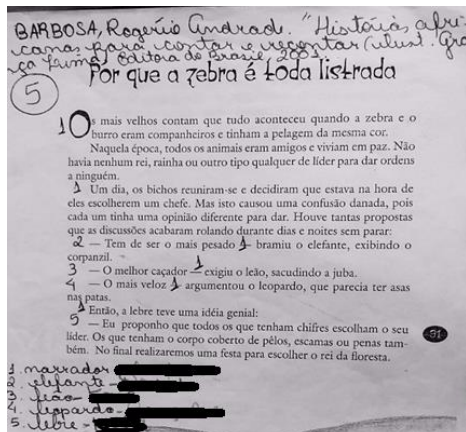 BARBOSA, Rogério Andrad. "Histórias afri
canas para contar e recontar (ilust. Gra
ça Lima) Editora do Brasil 2001
Por que a zebra é toda listrada
5
1 Os mais velhos contam que tudo aconteceu quando a zebra e o
burro eram companheiros e tinham a pelagem da mesma cor.
Naquela época, todos os animais eram amigos e viviam em paz. Não
havia nenhum rei, rainha ou outro tipo qualquer de líder para dar ordens
a ninguém.
1 Um dia, os bichos reuniram-se e decidiram que estava na hora de
eles escolherem um chefe. Mas isto causou uma confusão danada, pois
cada um tinha uma opinião diferente para dar. Houve tantas propostas
que as discussões acabaram rolando durante dias e noites sem parar:
2 — Tem de ser o mais pesado 1 — bramiu o elefante, exibindo o
corpanzil.
3 — O melhor caçador 1 — exigiu o leão, sacudindo a juba.
4 — O mais veloz 1 — argumentou o leopardo, que parecia ter asas
nas patas.
1 Então, a lebre teve uma idéia genial:
5 — Eu proponho que todos os que tenham chifres escolham o seu
líder. Os que tenham o corpo coberto de pêlos, escamas ou penas tam-
bém. No final realizaremos uma festa para escolher o rei da floresta.
31
1. narrador
2. elefante -
3. leão -
4. leopardo -
5. lebre -